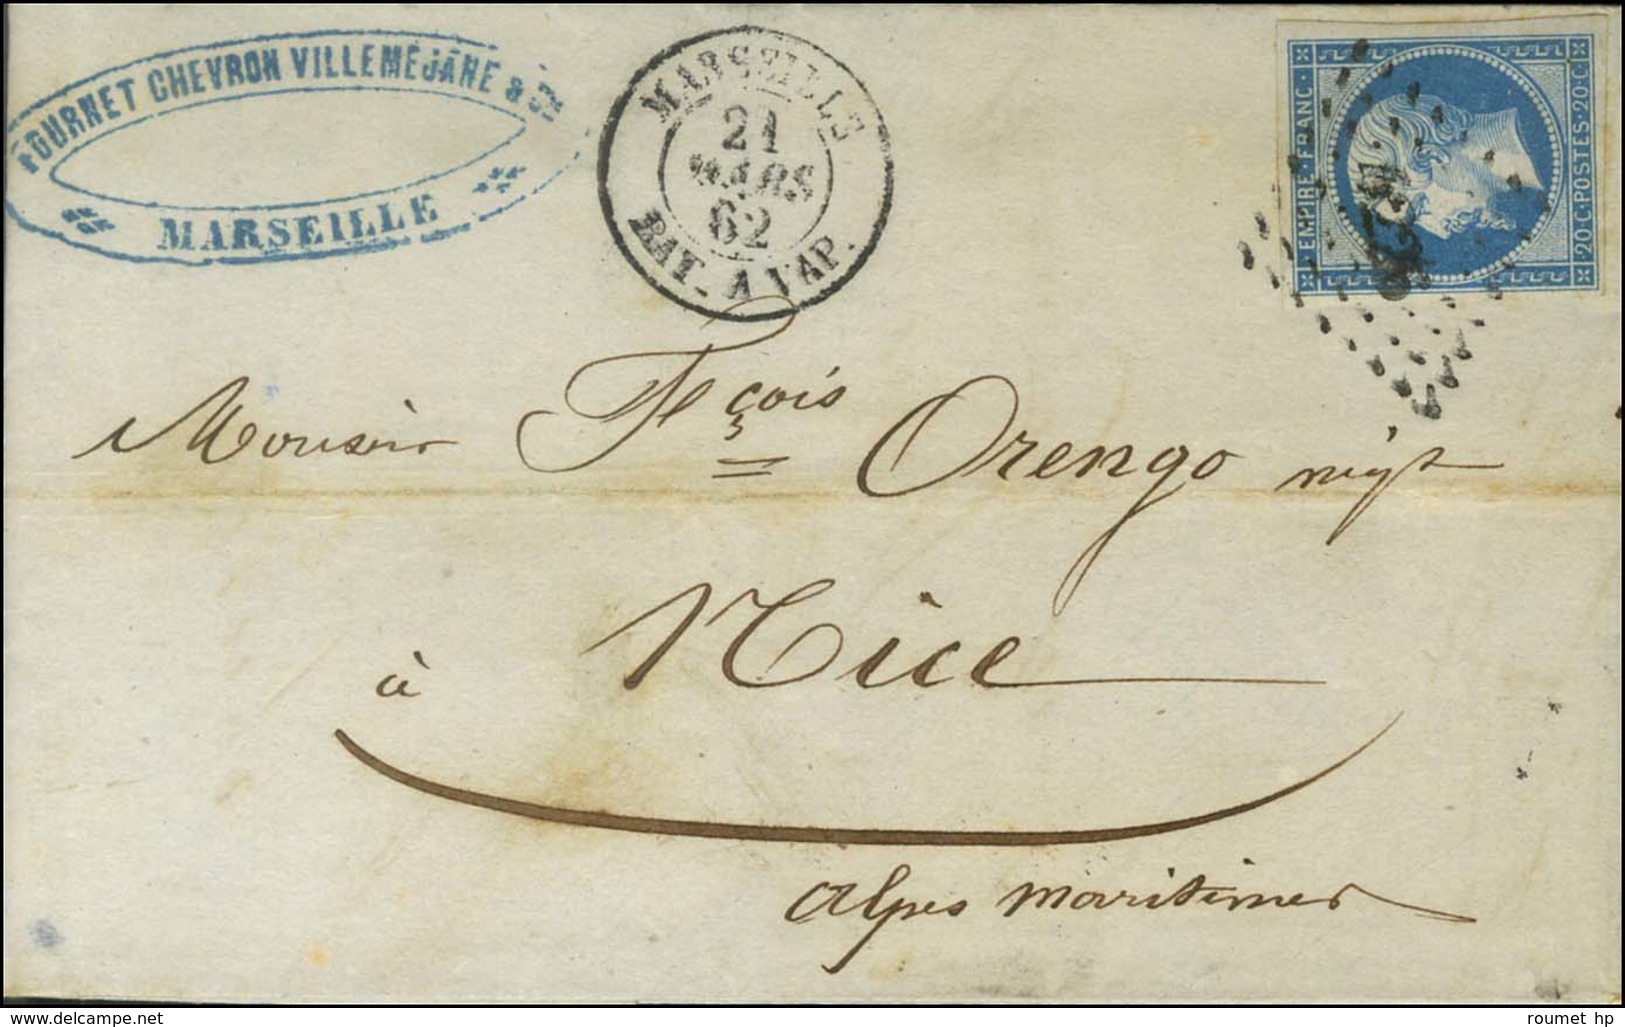 FOURNET CHEVRON VILLEMEJANE & Cie
MARSEILLE
MARSEILLE
21
MARS
62
BAT. A VAP.
EMPIRE·FRANC·
20·C·POSTES·20·C
Monsieur Fçois Orengo négt
à Nice
Alpes Maritimes
roumet hp
www.delcampe.com